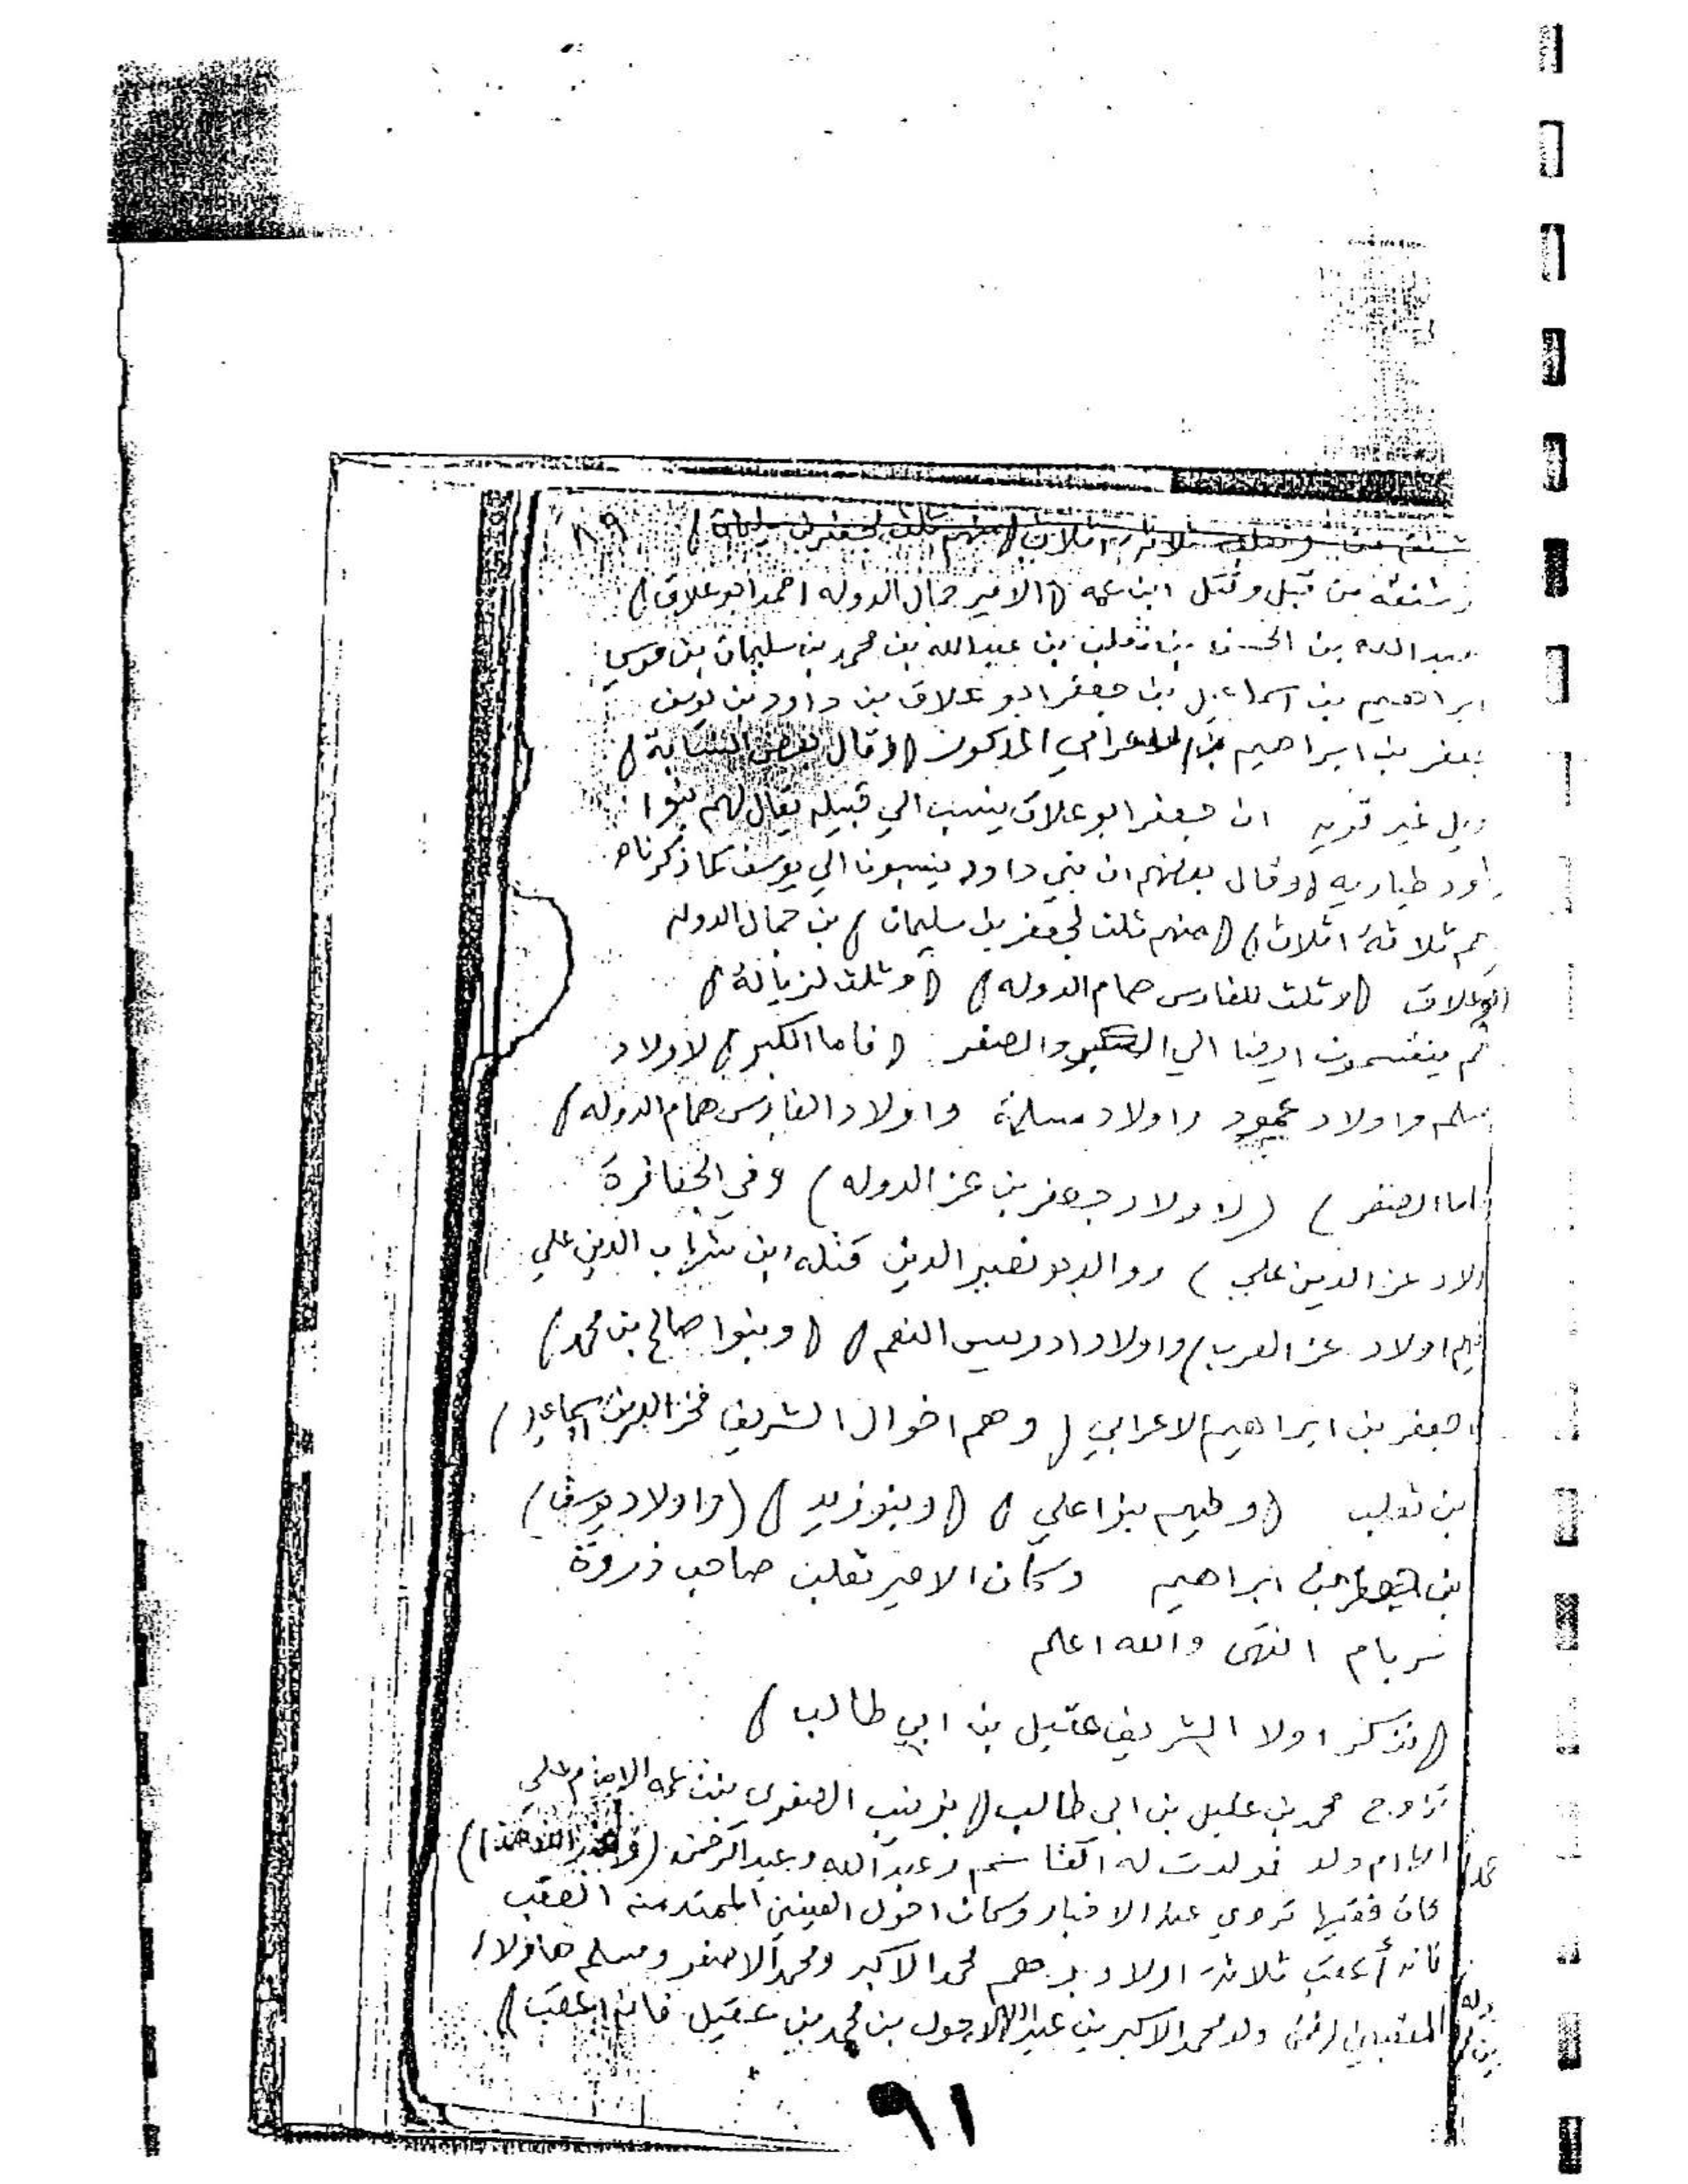 ٨٩
ثلاثة اثلاث (منهم ثلث لجعفر بن سليمان)
من قبل وقتل ابن عمه (الامير جمال الدوله احمد ابو علاق)
عبدالله بن الحسن بن ثعلب بن عبيدالله بن محمد بن سليمان بن موسي
ابراهيم بن اسماعيل بن جعفر ابو علاق بن داود بن يوسف
جعفر بن ابراهيم الاعرابي المذكور (وقال بعض النسابة)
غير قويه ان جعفر ابو علاق ينسب الي قبيله يقال لهم بنوا
داود طياريه (وقال بعضهم ان بني داود ينسبون الي يوسف كما ذكرناه
هم ثلاثة اثلاث) (منهم ثلث لجعفر بن سليمان) بن جمال الدوله
ابو علاق (وثلث للفارس همام الدوله) (وثلث لزيالة)
ثم ينقسمون ايضا الي الكبر والصغر (فاما الكبر) لاولاد
مسلم واولاد عمود واولاد مسلمة واولاد الفارس همام الدوله)
اما الصغر) (لاولاد جعفر بن عز الدوله) وفي الجعافرة
اولاد عز الدين علي) ووالدهو نصير الدين قتله ابن شهاب الدين علي
اولاد عز العرب) واولاد ادريس النعم) (وبنوا صالح بن محمد)
جعفر بن ابراهيم الاعرابي (وهم اخوال الشريف فخر الدين اسماعيل)
بن ثعلب (وطيهم بنوا علي) (وبنو زيد) (واولاد يوسف)
بن جعفر بن ابراهيم وكان الامير ثعلب صاحب ذروة
سربام انتهى والله اعلم
(نذكر اولا الشريف عقيل بن ابي طالب)
تزاوج محمد بن عقيل بن ابي طالب (بزينب الصغرى بنت عمه الامام علي
ام ولد فولدت له القاسم وعبدالله وعبدالرحمن
كان فقيها تروي عنه الاخبار وكان احول العينين الممتد منه العقب
فانه أعقب ثلاثة اولاد وهم محمد الاكبر ومحمد الاصغر ومسلم هاؤلاء
ولد محمد الاكبر بن عبدالله الاحول بن محمد بن عقيل فانه اعقب)
٩١